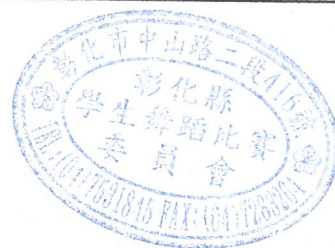 彰化市中山路二段416號
彰化縣
學生舞蹈比賽
委員會
TEL:(04)7531845 FAX:(04)7283264